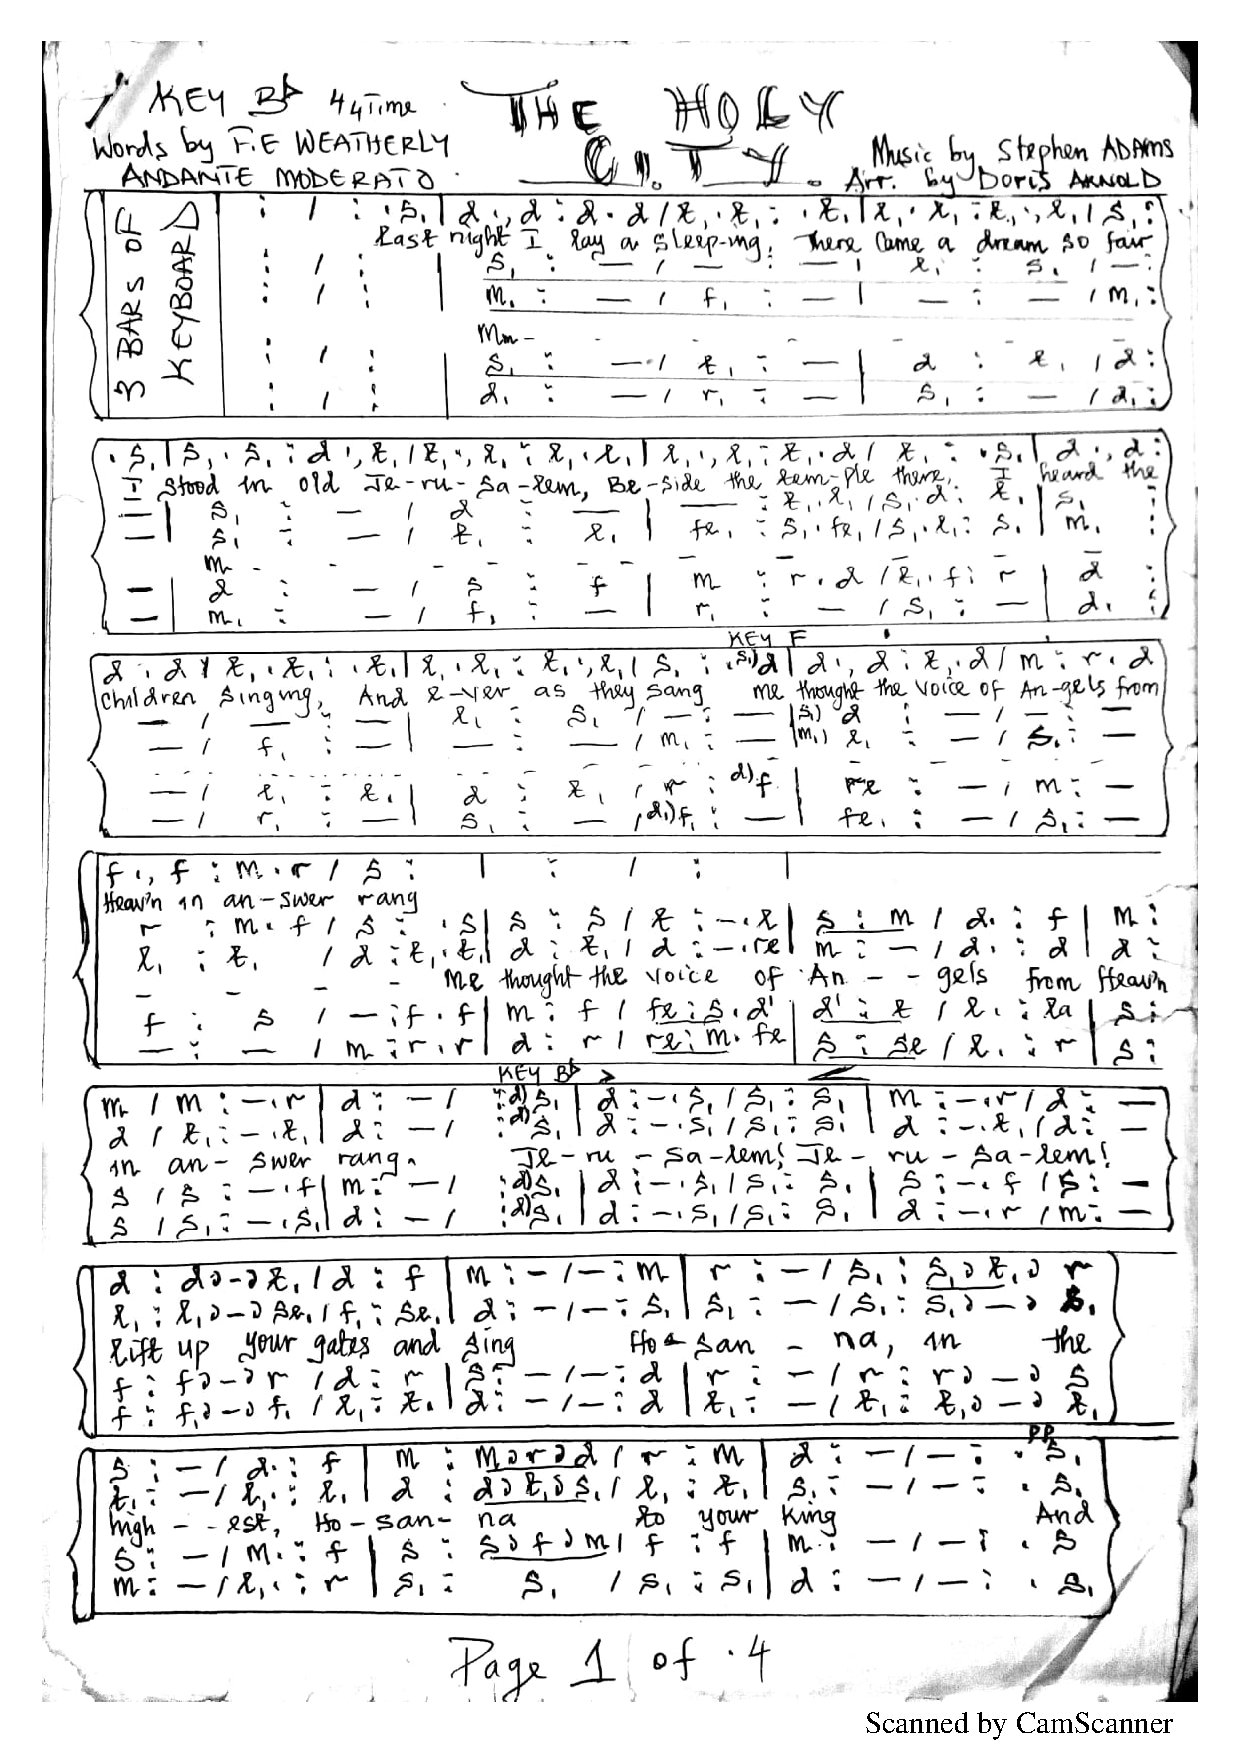 KEY B♭ 44 Time THE HOLY
Words by F.E WEATHERLY CITY. Music by Stephen ADAMS
ANDANTE MODERATO Arr. by Doris ARNOLD
3 BARS OF
KEYBOARD
: / : .s, | d ., d : d . d / t, . t, : . t, | l, . l, : t, ., l, / s, :
Last night I lay a sleep-ing, There came a dream so fair
: / : | s, : — / — : — | l, : s, / — :
: / : | m, : — / f, : — | — : — / m, :
Mm-
: / : | s, : — / t, : — | d : t, / d :
: / : | d, : — / r, : — | s, : — / d, :
. s, | s, . s, : d ., t, / t, ., l, : l, . l, | l, ., l, : t, . d / t, : . s, | d ., d :
I stood in old Je-ru-sa-lem, Be-side the tem-ple there, I heard the
— | s, : — / d : — | — : t, . l, / s, . d : t, | s, :
— | s, : — / t, : l, | fe, : s, . fe, / s, . l, : s, | m, :
m - - - - - - - - -
— | d : — / s : f | m : r . d / t, . f : r | d :
— | m, : — / f, : — | r, : — / s, : — | d, :
KEY F
d . d / t, . t, : . t, | l, . l, : t, ., l, / s, : . s,) d | d ., d : t, . d / m : r . d
Children singing, And e-ver as they sang me thought the voice of An-gels from
— / — : — | l, : s, / — : — | s,) d : — / — : —
— / f, : — | — : — / m, : — | m,) l, : — / s, : —
— / l, : t, | d : t, / r : d) f | re : — / m : —
— / r, : — | s, : — / d,) f, : — | fe, : — / s, : —
f ., f : m . r / s : | : / : |
Heav'n in an-swer rang
r : m . f / s : . s | s : s / t : - . l | s : m / d . : f | m :
l, : t, / d : t, . t, | d : t, / d : - . re | m : — / d . : d | d :
- - - - me thought the voice of An - - gels from Heav'n
f : s / — : f . f | m : f / fe : s . d' | d' : t / l . : la | s :
— : — / m : r . r | d : r / re : m . fe | s : se / l . : r | s :
KEY B♭ > <
m / m : — . r | d : — / : d) s, | d : — . s, / s, : s, | m : — . r / d : —
d / t, : — . t, | d : — / : d) s, | d : — . s, / s, : s, | d : — . t, / d : —
in an-swer rang. Je-ru-sa-lem! Je-ru-sa-lem!
s / s : — . f | m : — / : d) s, | d : — . s, / s, : s, | s : — . f / s : —
s / s, : — . s, | d : — / : d) s, | d : — . s, / s, : s, | d : — . r / m : —
d : d ɔ - ɔ t, / d : f | m : - / - : m | r : — / s, : s, ɔ t, ɔ r
l, : l, ɔ - ɔ se, / f, : se, | d : - / - : s, | s, : — / s, : s, ɔ — ɔ s,
Lift up your gates and sing Ho-san - na, in the
f : f ɔ - ɔ r / d : r | s : - / - : d | r : — / r : r ɔ — ɔ s
f : f, ɔ - ɔ f, / l, : t, | d : - / - : d | t, : — / t, : t, ɔ — ɔ t,
PP
s : — / d . : f | m : m ɔ r ɔ d / r : m | d : — / — : . s,
t, : — / l, . : l, | d : d ɔ t, ɔ s, / l, : t, | s, : — / — : . s,
high - - est, Ho-san- na to your king And
s : — / m . : f | s : s ɔ f ɔ m / f : f | m : — / — : . s
m : — / l, . : r | s, : s, / s, : s, | d : — / — : . s,
Page 1 of 4
Scanned by CamScanner